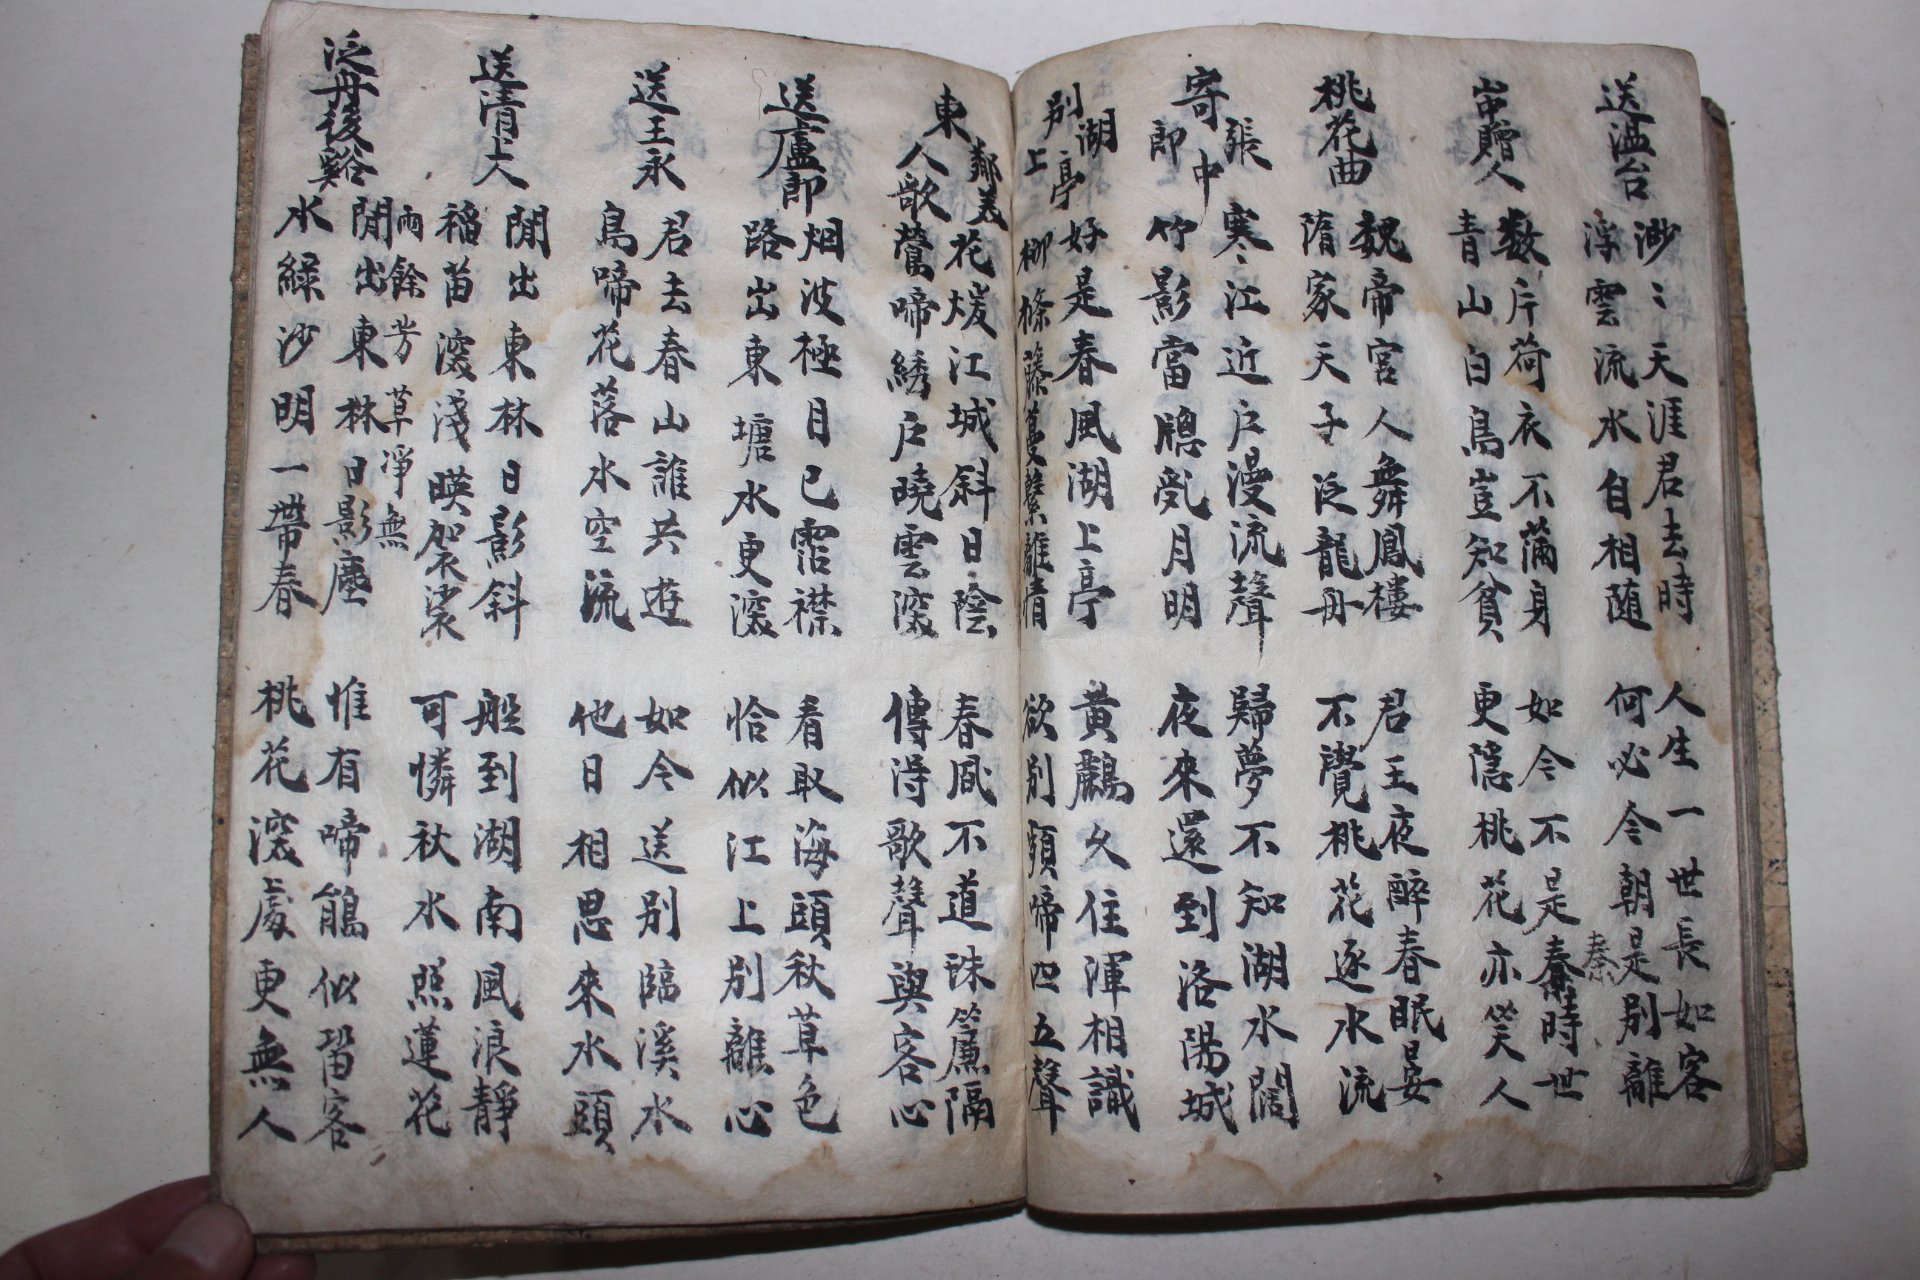 送溫台
渺〻天涯君去時 人生一世長如客
浮雲流水自相随 何必今朝是別離
山中贈人
数片荷衣不滿身 如今不是秦時世
秦
青山白鳥豈知貧 更隐桃花亦笑人
桃花曲
魏帝宮人舞鳳樓 君王夜醉春眠晏
隋家天子泛龍舟 不覺桃花逐水流
寄張
中郎
寒〻江近戶漫流聲 歸夢不知湖水闊
竹影當牕乱月明 夜來還到洛陽城
別湖
上亭
好是春風湖上亭 黄鸝久住渾相識
柳條藤蔓繫離情 欲別頻啼四五聲
東鄰美
人歌
花煖江城斜日陰 春風不道珠簾隔
鶯啼綉戶曉雲深 傳得歌聲與客心
送盧郎
烟波極目已霑襟 看取海頭秋草色
路出東塘水更深 恰似江上別離心
送王永
君去春山誰共遊 如今送別臨溪水
鳥啼花落水空流 他日相思來水頭
送清大
閒出東林日影斜 般到湖南風浪靜
稲苗深淺暎袈裟 可憐秋水照蓮花
泛舟後谿
雨餘芳草凈無
閒出東林日影塵 惟有啼鵑似留客
水綠沙明一帶春 桃花深處更無人